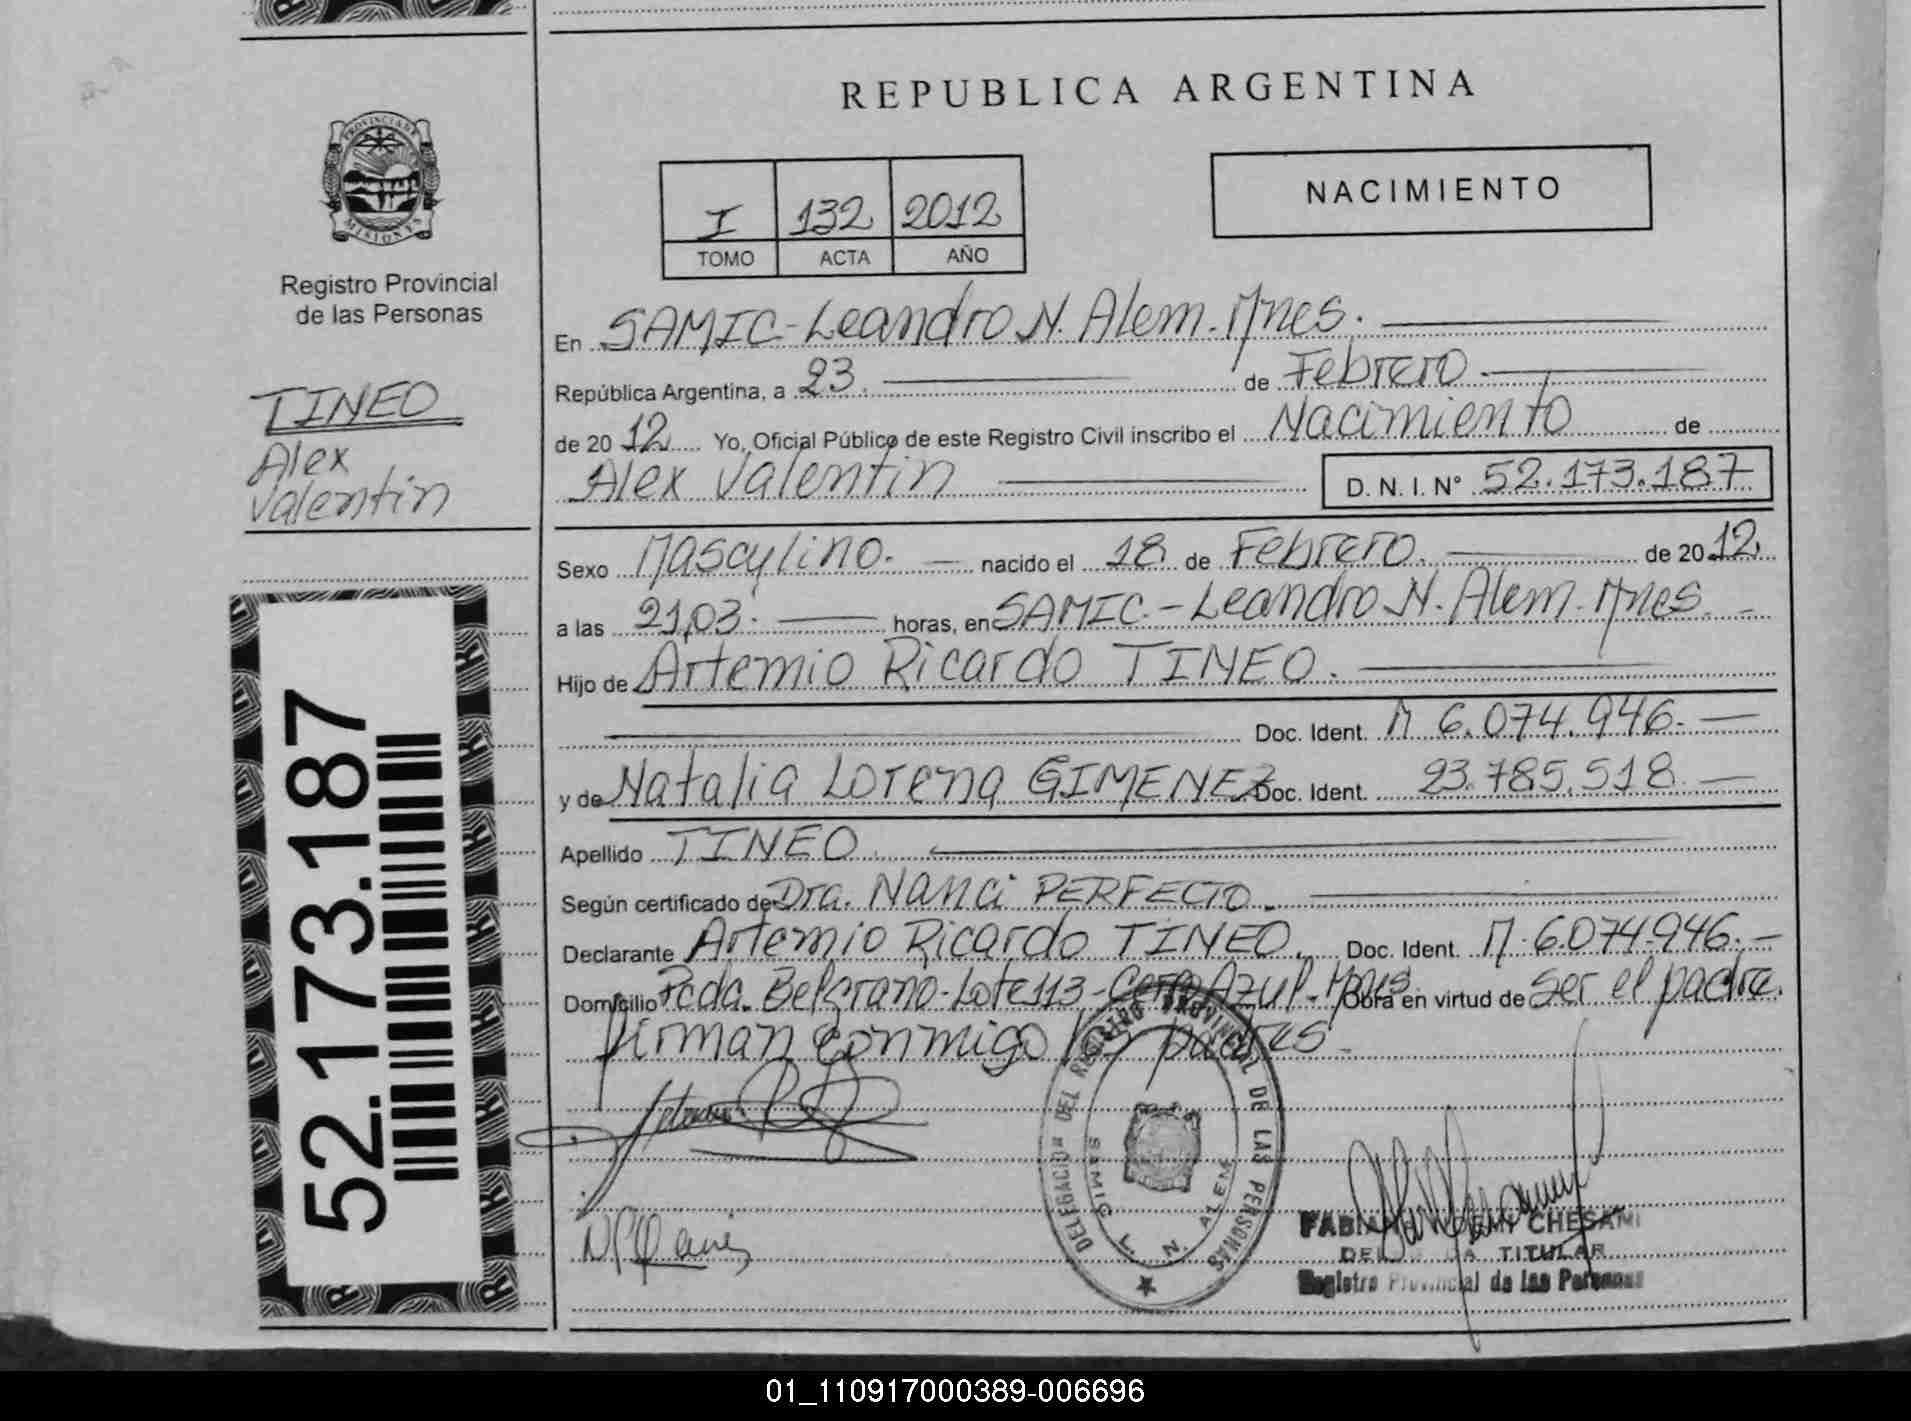 REPUBLICA ARGENTINA
PROVINCIA DE MISIONES
Registro Provincial
de las Personas
TINEO
Alex
Valentin
52.173.187
I 132 2012
TOMO ACTA AÑO
NACIMIENTO
En SAMIC-Leandro N. Alem. Mnes.
República Argentina, a 23. de Febrero
de 2012 Yo, Oficial Público de este Registro Civil inscribo el Nacimiento de
Alex Valentin D. N. I. N° 52.173.187
Sexo Masculino. nacido el 18 de Febrero. de 2012.
a las 21,03. horas, en SAMIC.-Leandro N. Alem. Mnes.
Hijo de Artemio Ricardo TINEO.
Doc. Ident. M 6.074.946.
y de Natalia Lorena GIMENEZ Doc. Ident. 23.785.518
Apellido TINEO.
Según certificado de Dra. Nanci PERFECTO.
Declarante Artemio Ricardo TINEO. Doc. Ident. M. 6.074.946.-
Domicilio Pcda. Belgrano-Lote 113-Cerro Azul-Mnes. Obra en virtud de ser el padre.
Firman conmigo los padres
DELEGACION DEL REGISTRO PROVINCIAL DE LAS PERSONAS
SAMIC L. N. ALEM
NOEMI CHESANI
TITULAR
Registro Provincial de las Personas
01_110917000389-006696